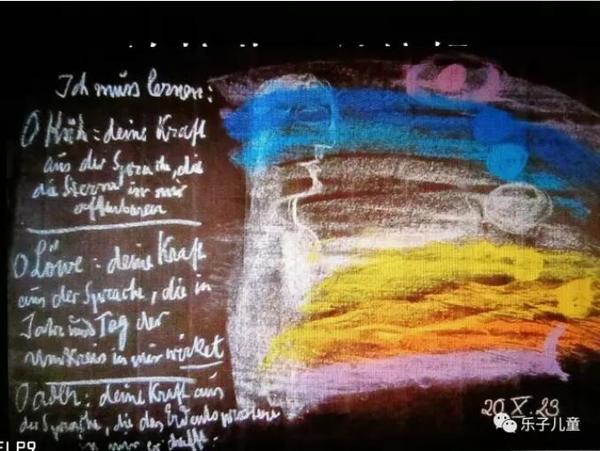 Ich muss lernen:
O Kuh: deine Kraft
aus der Sprache, die
die Sterne in mir
offenbaren
O Löwe: deine Kraft
aus der Sprache, die in
Jahr und Tag der
Umkreis in mir wirket
O Adler: deine Kraft aus
der Sprache, die das
in mir erschafft.
20 X. 23
乐子儿童